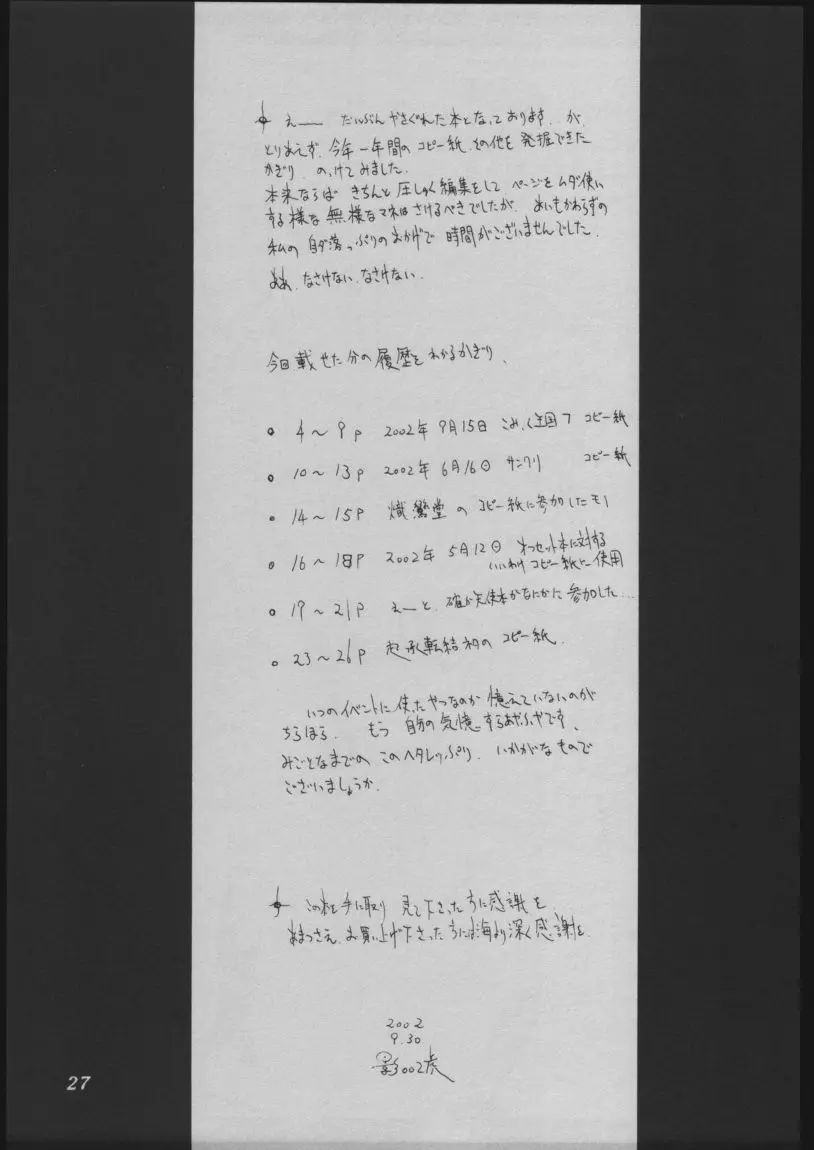 えー だいぶんやさぐれた本となっております、が、
とりあえず、今年一年間のコピー紙、その他を発掘できた
かぎり、のっけてみました。
本来ならばきちんと圧しゅく編集をしてページをムダ使い
する様な無様なマネはさけるべきでしたが、あいもかわらずの
私の自ダ落っぷりのおかげで時間がございませんでした。
ああ、なさけない、なさけない。
今回載せた分の履歴をわかるかぎり、
○ 4～9p 2002年9月15日 こみっく王国7 コピー紙
○ 10～13p 2002年6月16日 サンクリ コピー紙
○ 14～15p 熾鸞堂のコピー紙に参加したモノ
○ 16～18p 2002年5月12日 オフセット本に対する
いいわけコピー紙に使用
○ 19～21p えーと、確か天使本かなにかに参加した…
○ 23～26p 起承転結初のコピー紙。
いつのイベントに使ったやつなのか憶えていないのが
ちらほら。もう自分の気憶するあやふやです。
みごとなまでのこのヘタレっぷり、いかがなもので
ございましょうか。
この本を手に取り見て下さった方に感謝を
あまつさえ、お買い上げ下さった方には海より深く感謝を
2002
9.30
影002虎
27